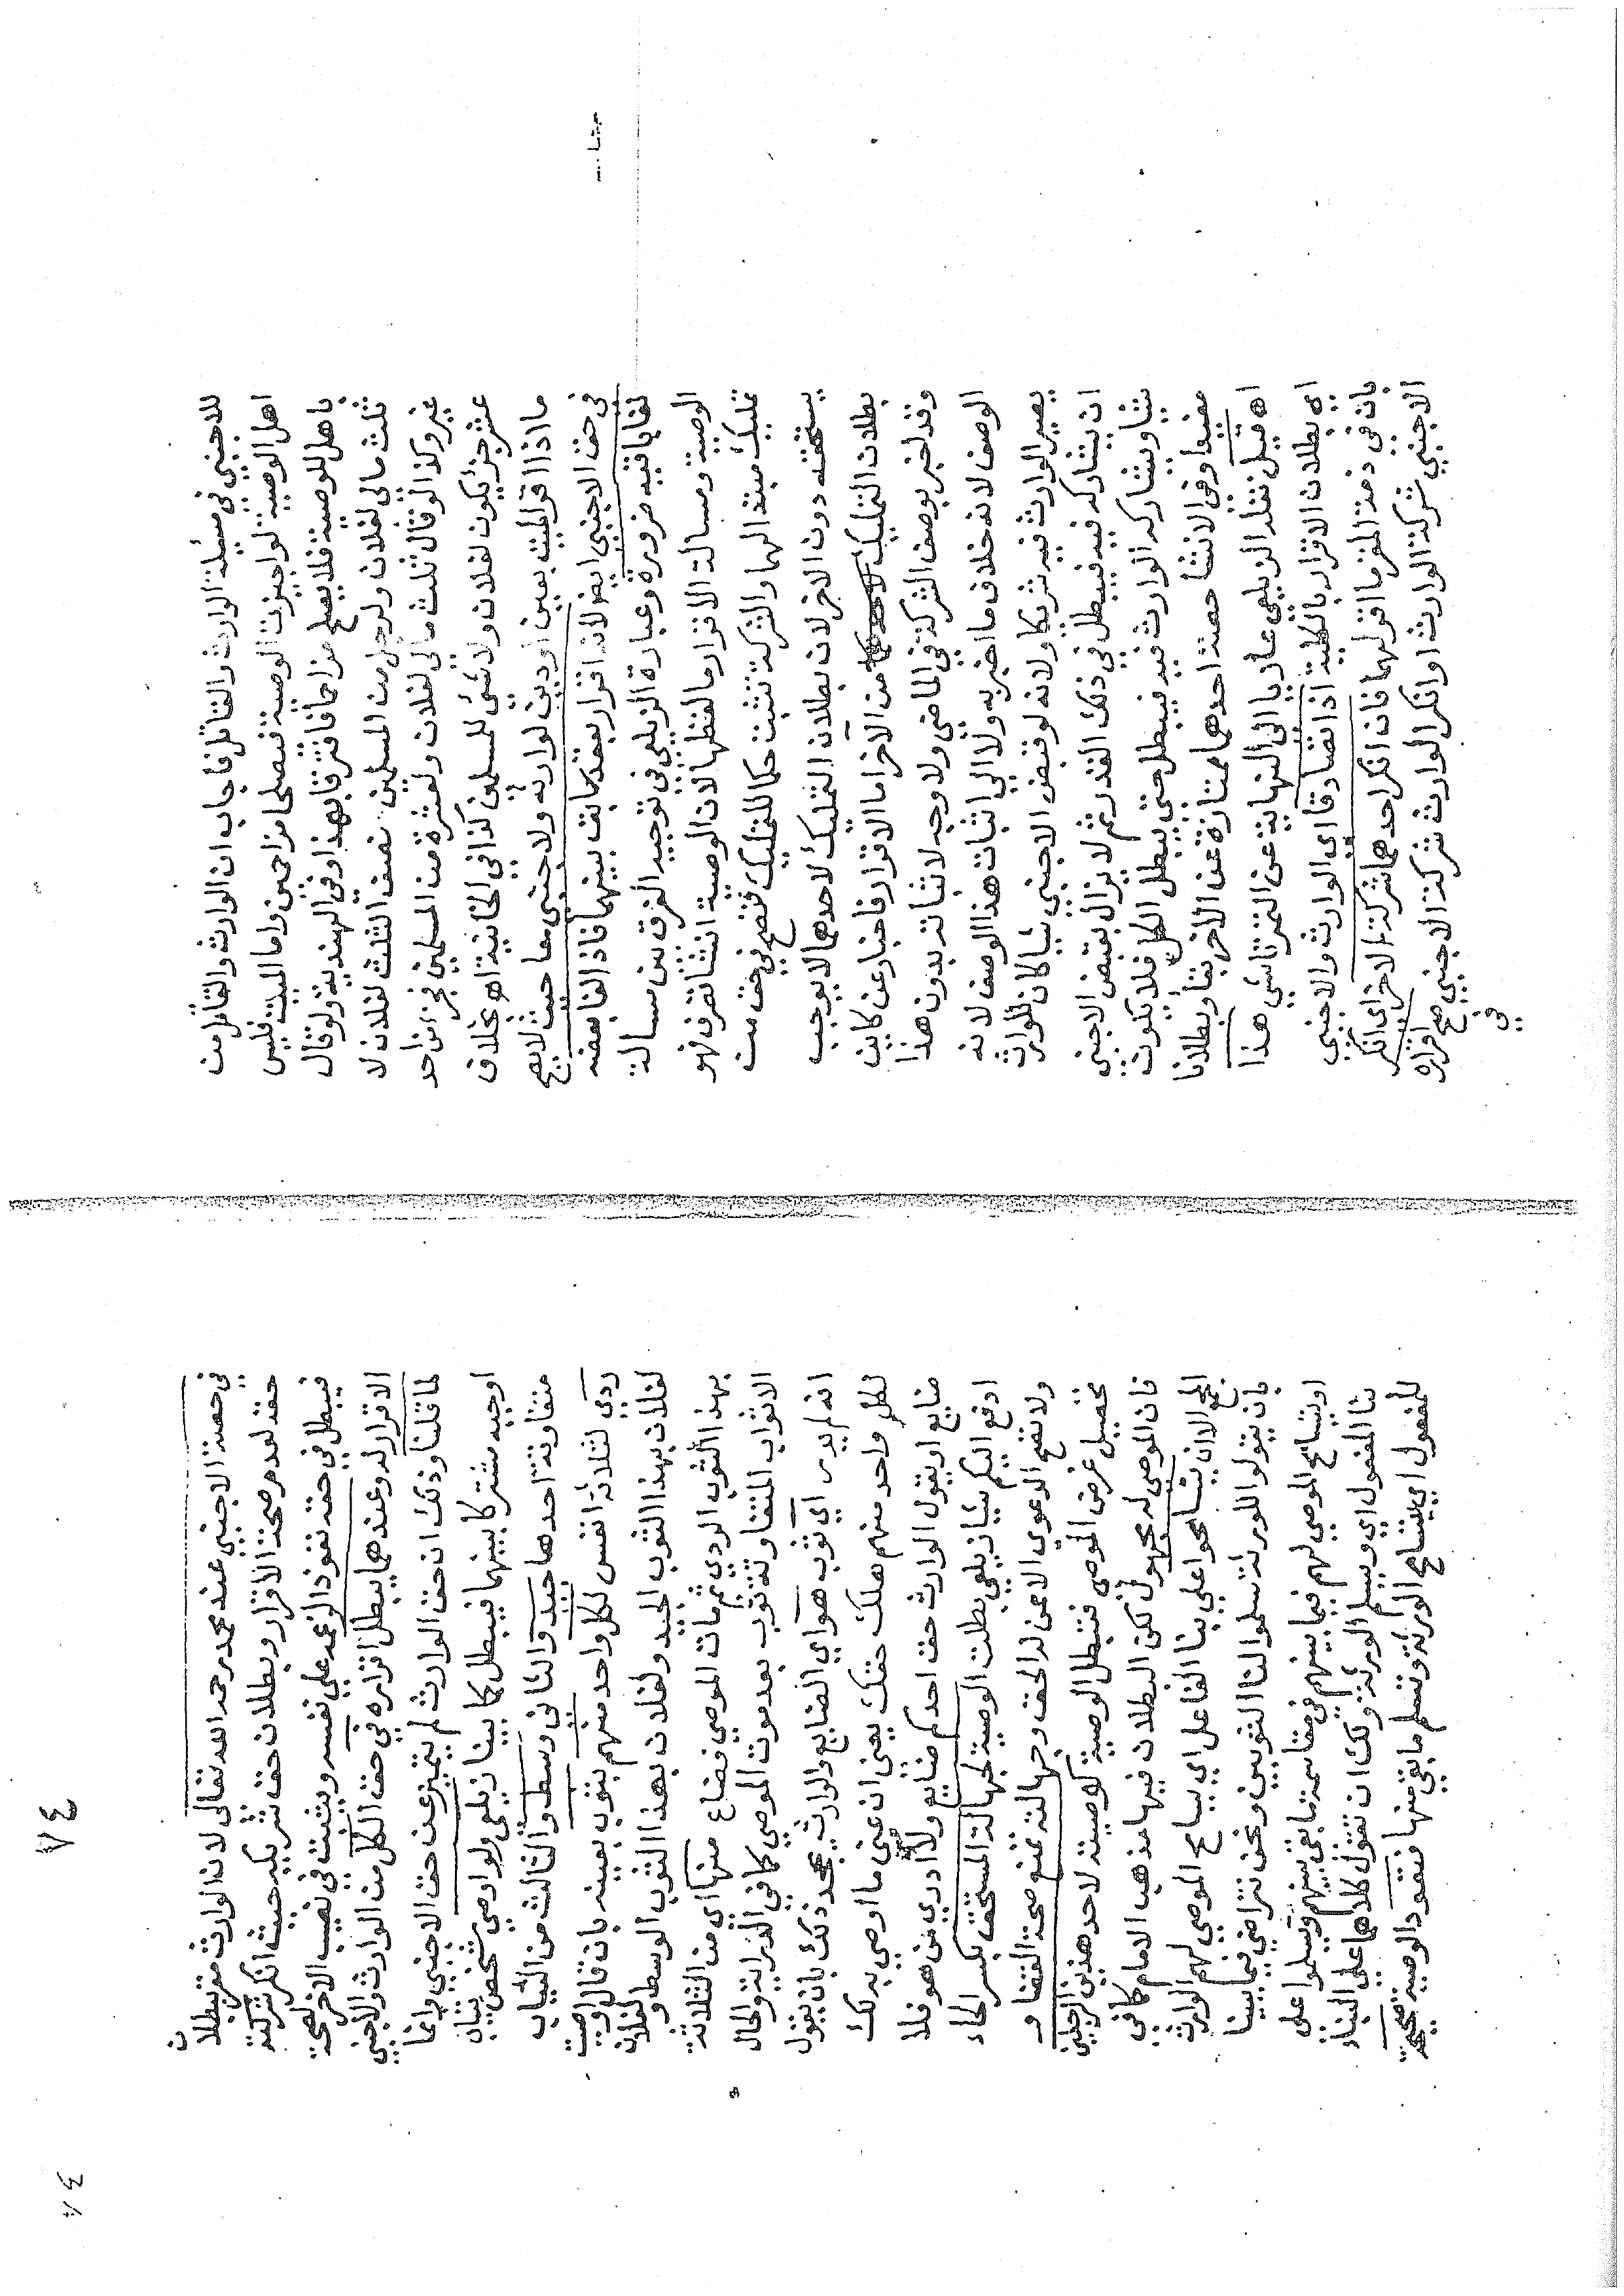 للاجنبي في مسئلة الوارث والقاتل فاجاب ان الوارث والقاتل من
اهل الوصية لو اجيزت الوصية فيصلحا مزاحمين واما الميت فليس
باهل للوصية فلا يصلح مزاحما فافترقا بهذا وفي الهندية ولو قال
ثلث مالي لفلان ولرجل من المسلمين نصف الثلث لفلان لا
غير وكذا لو قال ثلث مالي لفلان ولعشرة من المسلمين فجزء من احد
عشر جزء يكون لفلان ولا شئ للمسلمين كذا في الخانية اهـ بخلاف
ما اذا اقر الميت بعين او دين لوارثه ولاجنبي معا حيث لا يصح
في حق الاجنبي ايضا لانه اقرار بعقد سابق بينهما فاذا لغا بعضه
لغا باقيه ضرورة وعبارة الزيلعي في توجيه الفرق بين مسالة
الوصية ومسالة الاقرار ما لفظها لان الوصية انشا تصرف فهو
تمليك مبتدا لهما والشركة تثبت حكما للتمليك فتصح في حق من
يستحقه دون الاخر لان بطلان التمليك لاحدهما لا يوجب
بطلان التمليك من الاخر اما الاقرار فاخبار عن كاين
وقد اخبر بوصف الشركة في الماضي ولا وجه لاثباته بدون هذا
الوصف لانه خلاف ما اخبر به ولا الي اثبات هذا الوصف لانه
يصير الوارث فيه شريكا ولانه لو قبض الاجنبي شيا كان للوارث
ان يشاركه فيه فيبطل في ذلك القدر ثم لا يزال يقبض الاجنبي
شيا ويشاركه الوارث فيه فيبطل حتي يبطل الكل فلا يكون
مفيدا وفي الانشا حصة احدهما ممتازة عن الاخر بقا وبطلانا
اهـ قيل نقله الزيلعي عازيا الي النهاية عن التمرتاشي هذا
اي بطلان الاقرار بالكلية اذا تصادقا اي الوارث والاجنبي
بانه في ذمة المقر ما اقر لهما فان انكر احدهما شركة الاخر اي انكر
الاجنبي شركة الوارث او انكر الوارث شركة الاجنبي صح اقراره
في
٤٨
في حصة الاجنبي عند محمد رحمه الله تعالى لان الوارث مقر ببطلان
حقه لعدم صحة الاقرار وبطلان حق شريكه حيث انكر شركته
فيبطل في حقه نفوذا لزعمه علي نفسه ويثبت في نصيب الاخر لصحة
الاقرار له وعندهما يبطل اقراره في حق الكل من الوارث والاجنبي
لما قلنا وذلك ان حق الوارث لم يتميز عن حق الاجنبي وانما
اوجبه مشتركا بينهما فيبطل كما بينا زيلعي ولو اوصي شخص بثياب
متفاوتة احدها جيد والثاني وسط والثالث من الثياب
ردي لثلاثة انفس لكل واحد منهم بثوب بعينه بان قال اوصيت
لفلان بهذا الثوب الجيد ولفلان بهذا الثوب الوسط ولفلان
بهذا الثوب الردي ثم مات الموصي فضاع منها اي من الثلاثة
الاثواب المتفاوتة ثوب بعد موت الموصي كما في الدراية والحال
انه لم يدر اي ثوب هو اي الضايع والوارث يجحد ذلك بان يقول
لكل واحد منهم هلك حقك يعني ان عني ما اوصي به لك
ضايع او يقول الوارث حق احدكم ضايع ولا ادري من هو فلا
ادفع اليكم شيا زيلعي بطلت الوصية لجهالة المستحق بكسر الحاء
ولا تصح الدعوي الا ممن له الحق وجهالته تمنع صحة القضا و
تحصيل غرض الموصي فتبطل الوصية كوصيته لاحد هذين الرجلين
فان الموصي له مجهول لكن البطلان فيها مذهب الامام كما في
المجمع الا ان يتسامحوا علي بنا الفاعل اي يسامح الموصي لهم الوارث
بان يقولوا للورثة سلموا لنا الثوبين ونحن نتراضي فيما بيننا
او يتسامح الموصي لهم فيما بينهم في مقاسمة ما بقي بينهم ويسلموا علي
بنا المفعول اي ويسلم الورثة ولك ان تقول كلاهما علي البناء
للمفعول اي يتسامح الورثة وتسلم ما بقي منها فتعود الوصية صحيحة